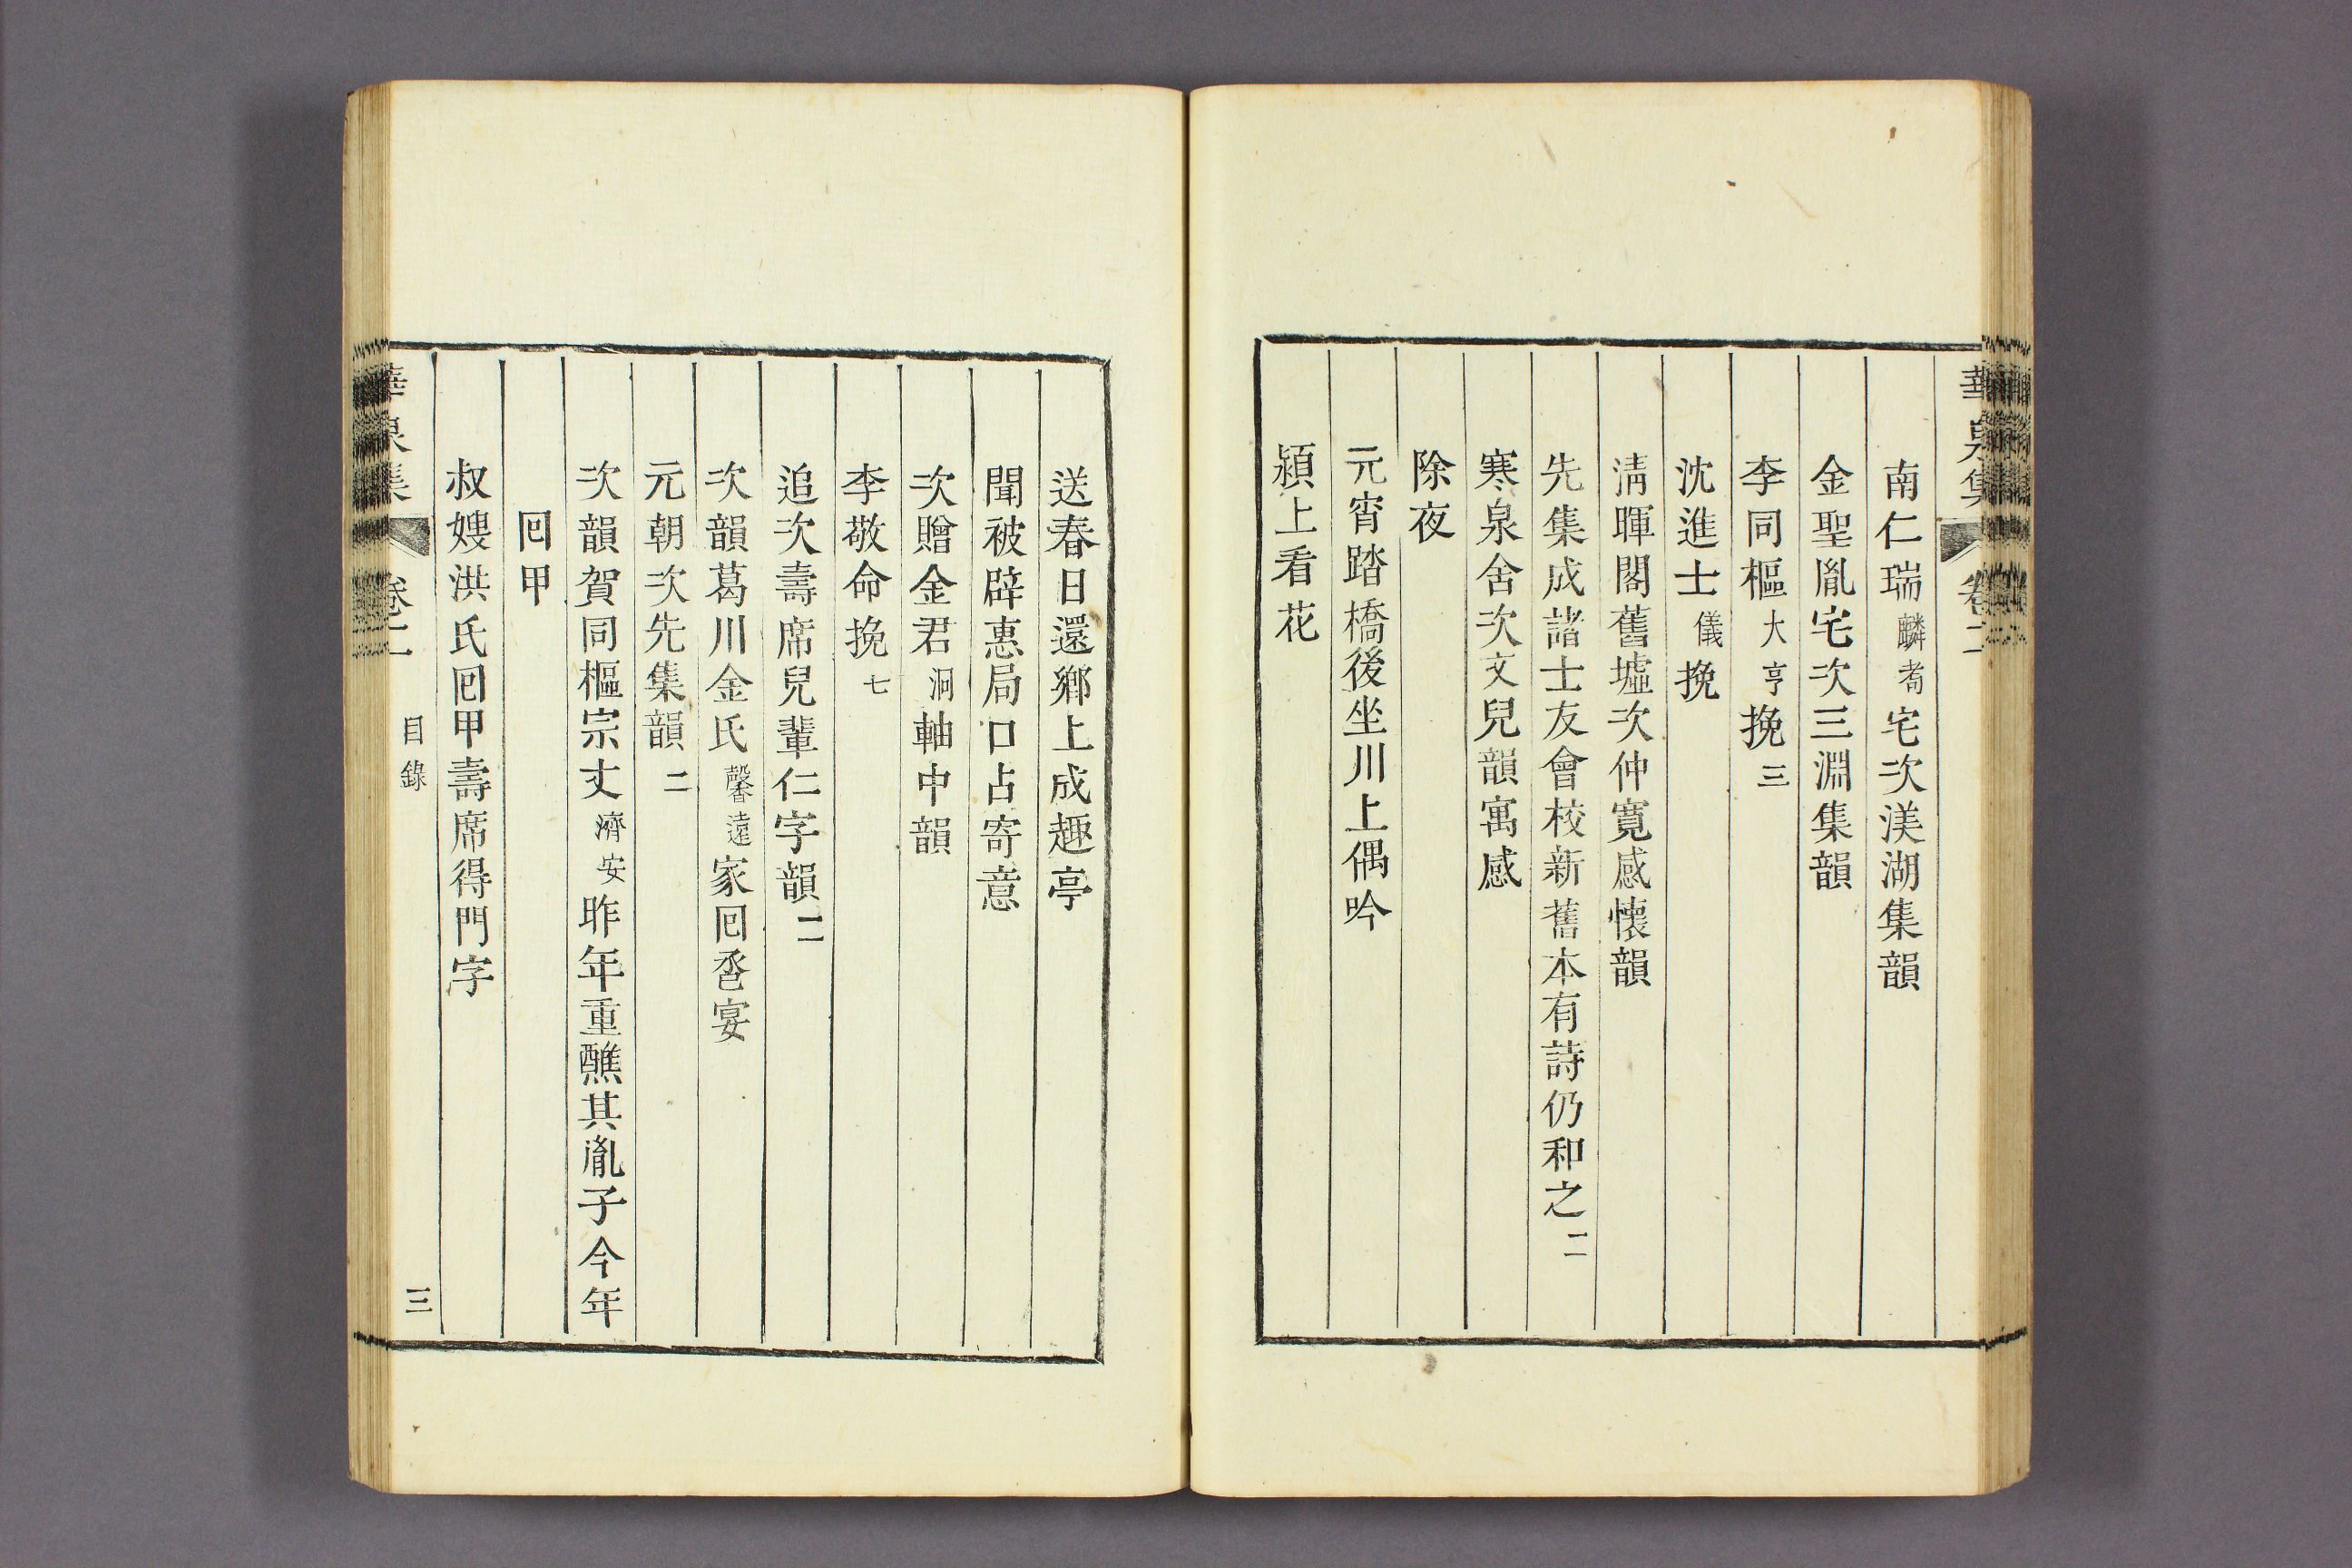 華泉集 卷二
南仁瑞麟耇宅次渼湖集韻
金聖胤宅次三淵集韻
李同樞大亨挽三
沈進士儀挽
淸暉閣舊墟次仲寬感懷韻
先集成諸士友會校新舊本有詩仍和之二
寒泉舍次文兒韻寓感
除夜
元宵踏橋後坐川上偶吟
潁上看花
送春日還鄉上成趣亭
聞被辟惠局口占寄意
次贈金君泂軸中韻
李敬命挽七
追次壽席兒輩仁字韻二
次韻葛川金氏馨遠家回巹宴
元朝次先集韻二
次韻賀同樞宗丈濟安昨年重醮其胤子今年
回甲
叔嫂洪氏回甲壽席得門字
華泉集 卷二 目錄 三